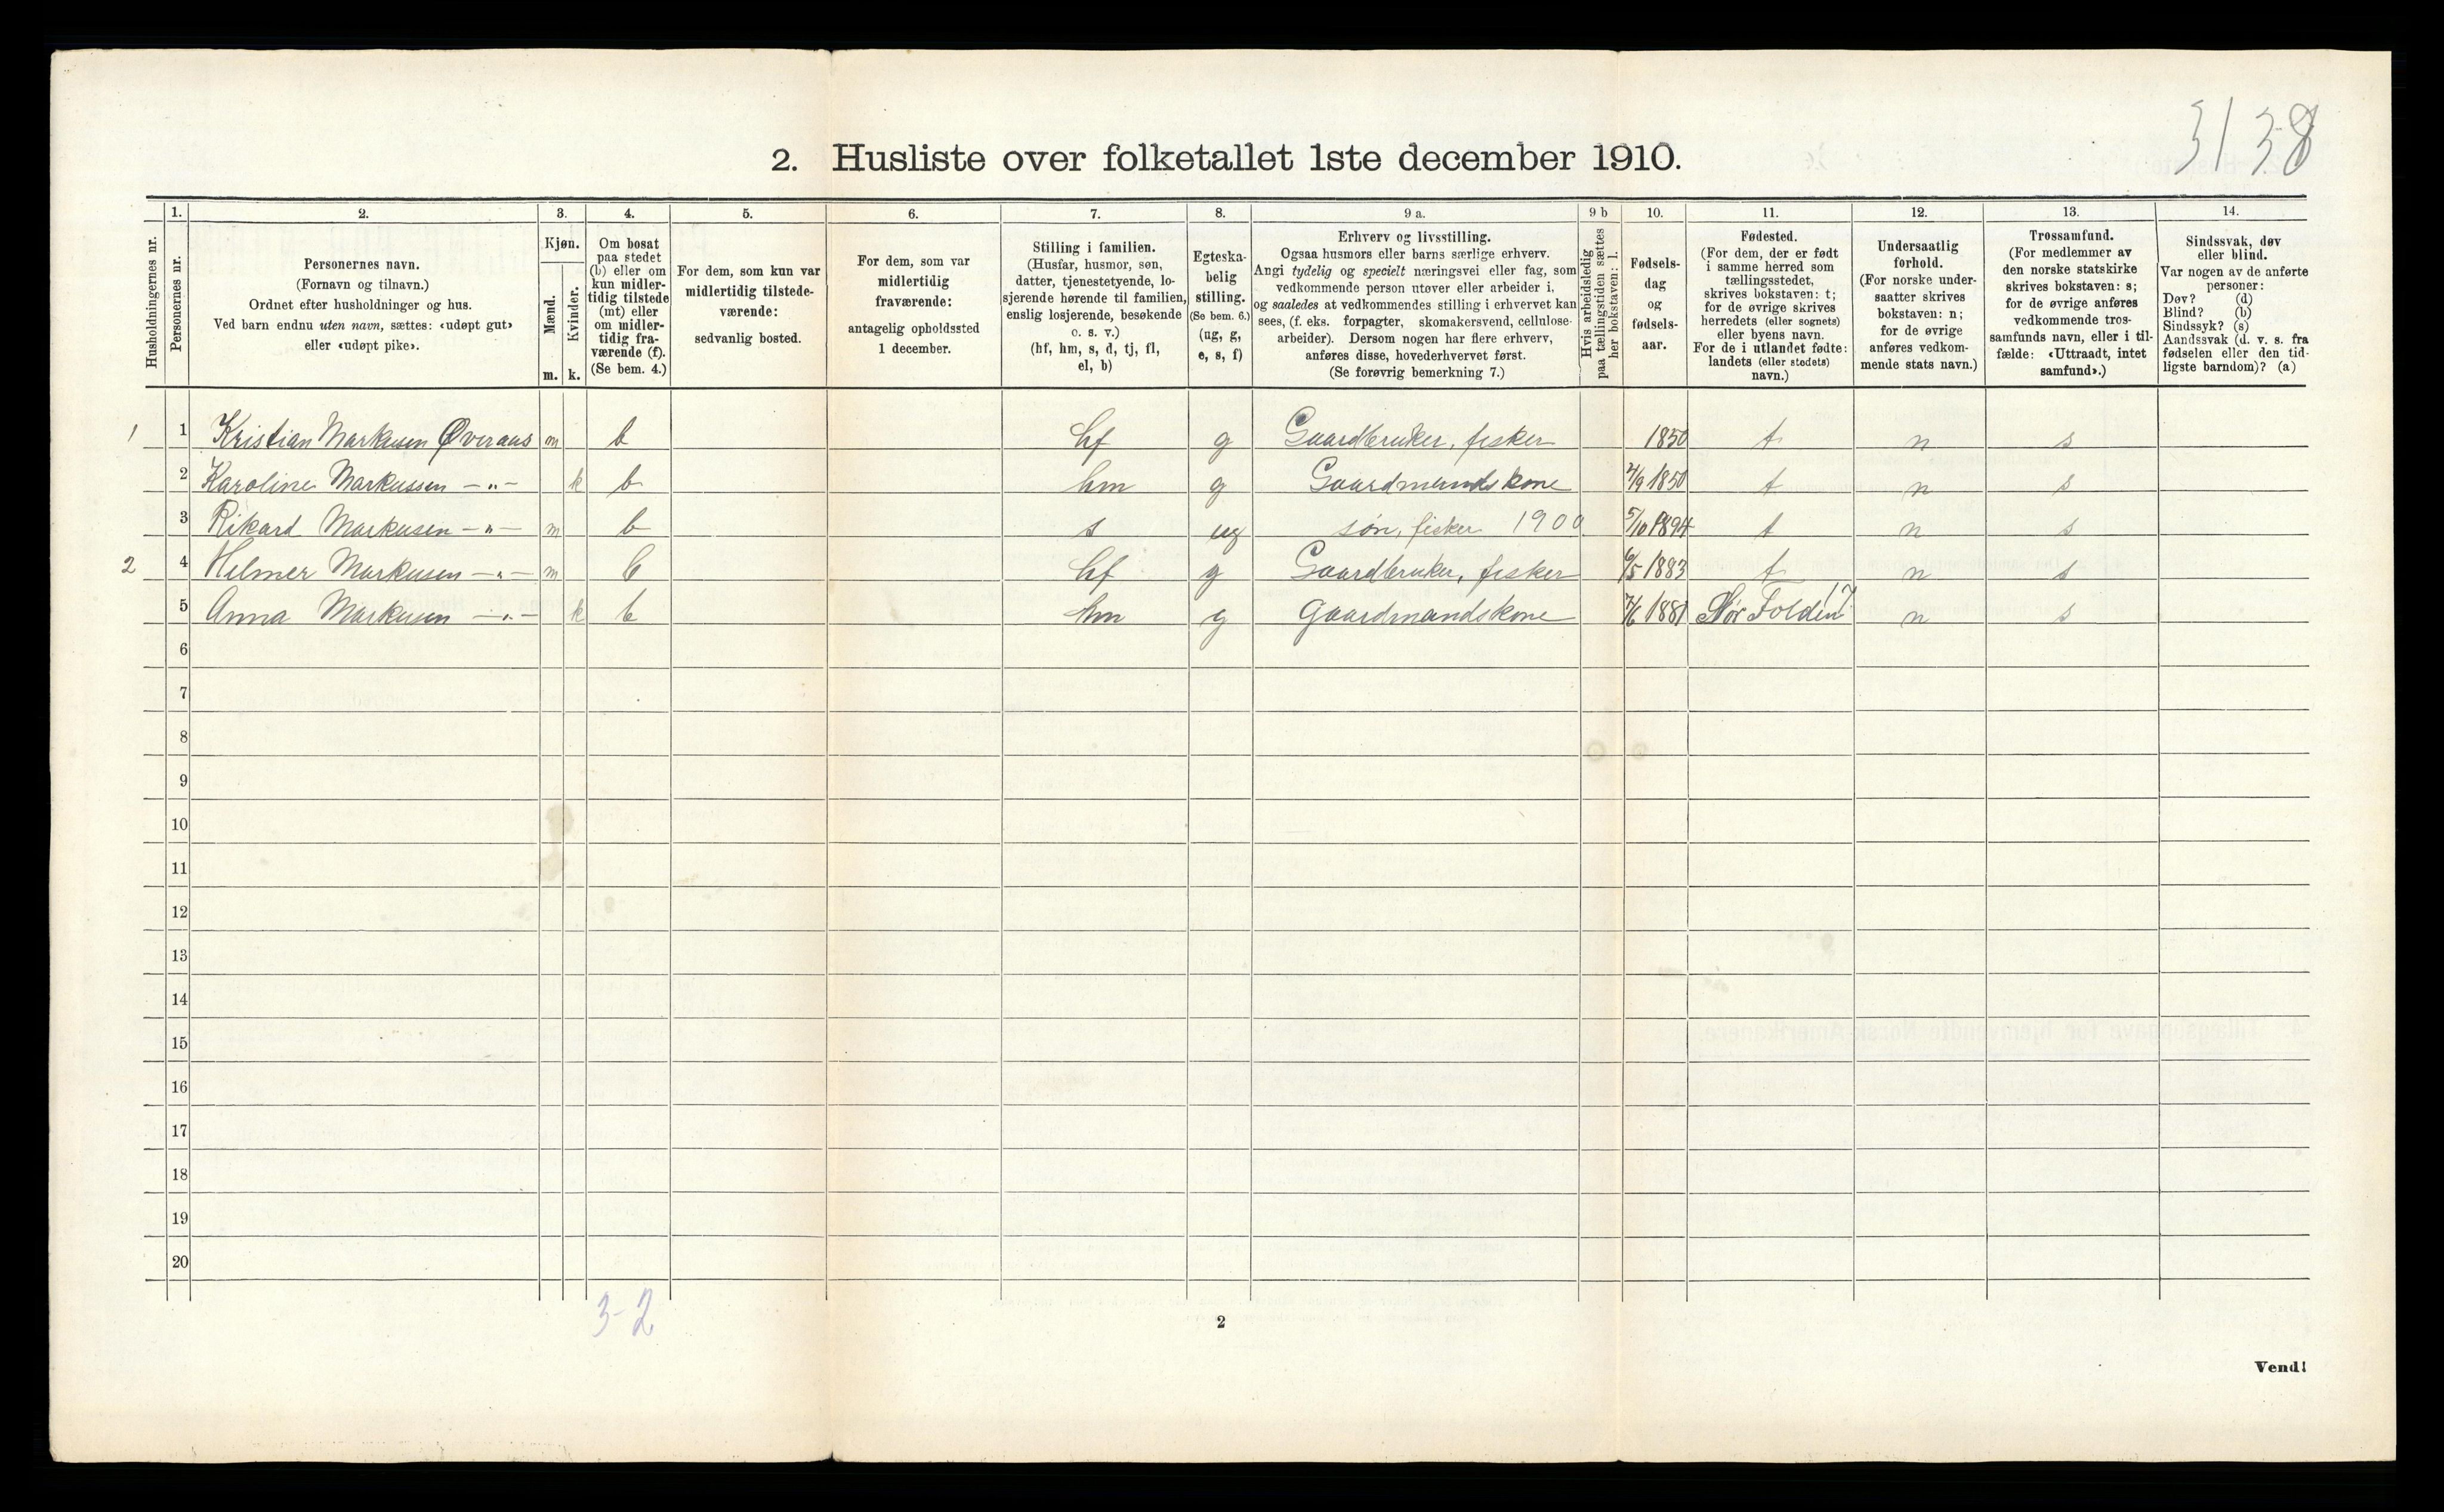 3138
2. Husliste over folketallet 1ste december 1910.
Husholdningernes nr.
1. Personernes nr.
2. Personernes navn.
(Fornavn og tilnavn.)
Ordnet efter husholdninger og hus.
Ved barn endnu uten navn, sættes: «udøpt gut»
eller «udøpt pike».
3. Kjøn.
Mænd. m.
Kvinder. k.
4. Om bosat
paa stedet
(b) eller om
kun midler-
tidig tilstede
(mt) eller
om midler-
tidig fra-
værende (f).
(Se bem. 4.)
5. For dem, som kun var
midlertidig tilstede-
værende:
sedvanlig bosted.
6. For dem, som var
midlertidig
fraværende:
antagelig opholdssted
1 december.
7. Stilling i familien.
(Husfar, husmor, søn,
datter, tjenestetyende, lo-
sjerende hørende til familien,
enslig losjerende, besøkende
o. s. v.)
(hf, hm, s, d, tj, fl,
el, b)
8. Egteska-
belig
stilling.
(Se bem. 6.)
(ug, g,
e, s, f)
9 a. Erhverv og livsstilling.
Ogsaa husmors eller barns særlige erhverv.
Angi tydelig og specielt næringsvei eller fag, som
vedkommende person utøver eller arbeider i,
og saaledes at vedkommendes stilling i erhvervet kan
sees, (f. eks. forpagter, skomakersvend, cellulose-
arbeider). Dersom nogen har flere erhverv,
anføres disse, hovederhvervet først.
(Se forøvrig bemerkning 7.)
9 b Hvis arbeidsledig
paa tællingstiden sættes
her bokstaven: l.
10. Fødsels-
dag
og
fødsels-
aar.
11. Fødested.
(For dem, der er født
i samme herred som
tællingsstedet,
skrives bokstaven: t;
for de øvrige skrives
herredets (eller sognets)
eller byens navn.
For de i utlandet fødte:
landets (eller stedets)
navn.)
12. Undersaatlig
forhold.
(For norske under-
saatter skrives
bokstaven: n;
for de øvrige
anføres vedkom-
mende stats navn.)
13. Trossamfund.
(For medlemmer av
den norske statskirke
skrives bokstaven: s;
for de øvrige anføres
vedkommende tros-
samfunds navn, eller i til-
fælde: «Uttraadt, intet
samfund».)
14. Sindssvak, døv
eller blind.
Var nogen av de anførte
personer:
Døv? (d)
Blind? (b)
Sindssyk? (s)
Aandssvak (d. v. s. fra
fødselen eller den tid-
ligste barndom)? (a)
1 1 Kristian Markusen Øveraas m b hf g Gaardbruker, fisker 1850 t n s
2 Karoline Markussen -"- k b hm g Gaardmandskone 1850 t n s
3 Rikard Markusen -"- m b s ug søn, fisker 1900 5/10 1894 t n s
2 4 Hilmer Markusen -"- m b hf g Gaardbruker, fisker 6/5 1883 t n s
5 Anna Markusen -"- k b hm g Gaardmandskone 7/6 1881 Nor Folden 17 n s
6
7
8
9
10
11
12
13
14
15
16
17
18
19
20
3-2
2
Vend!